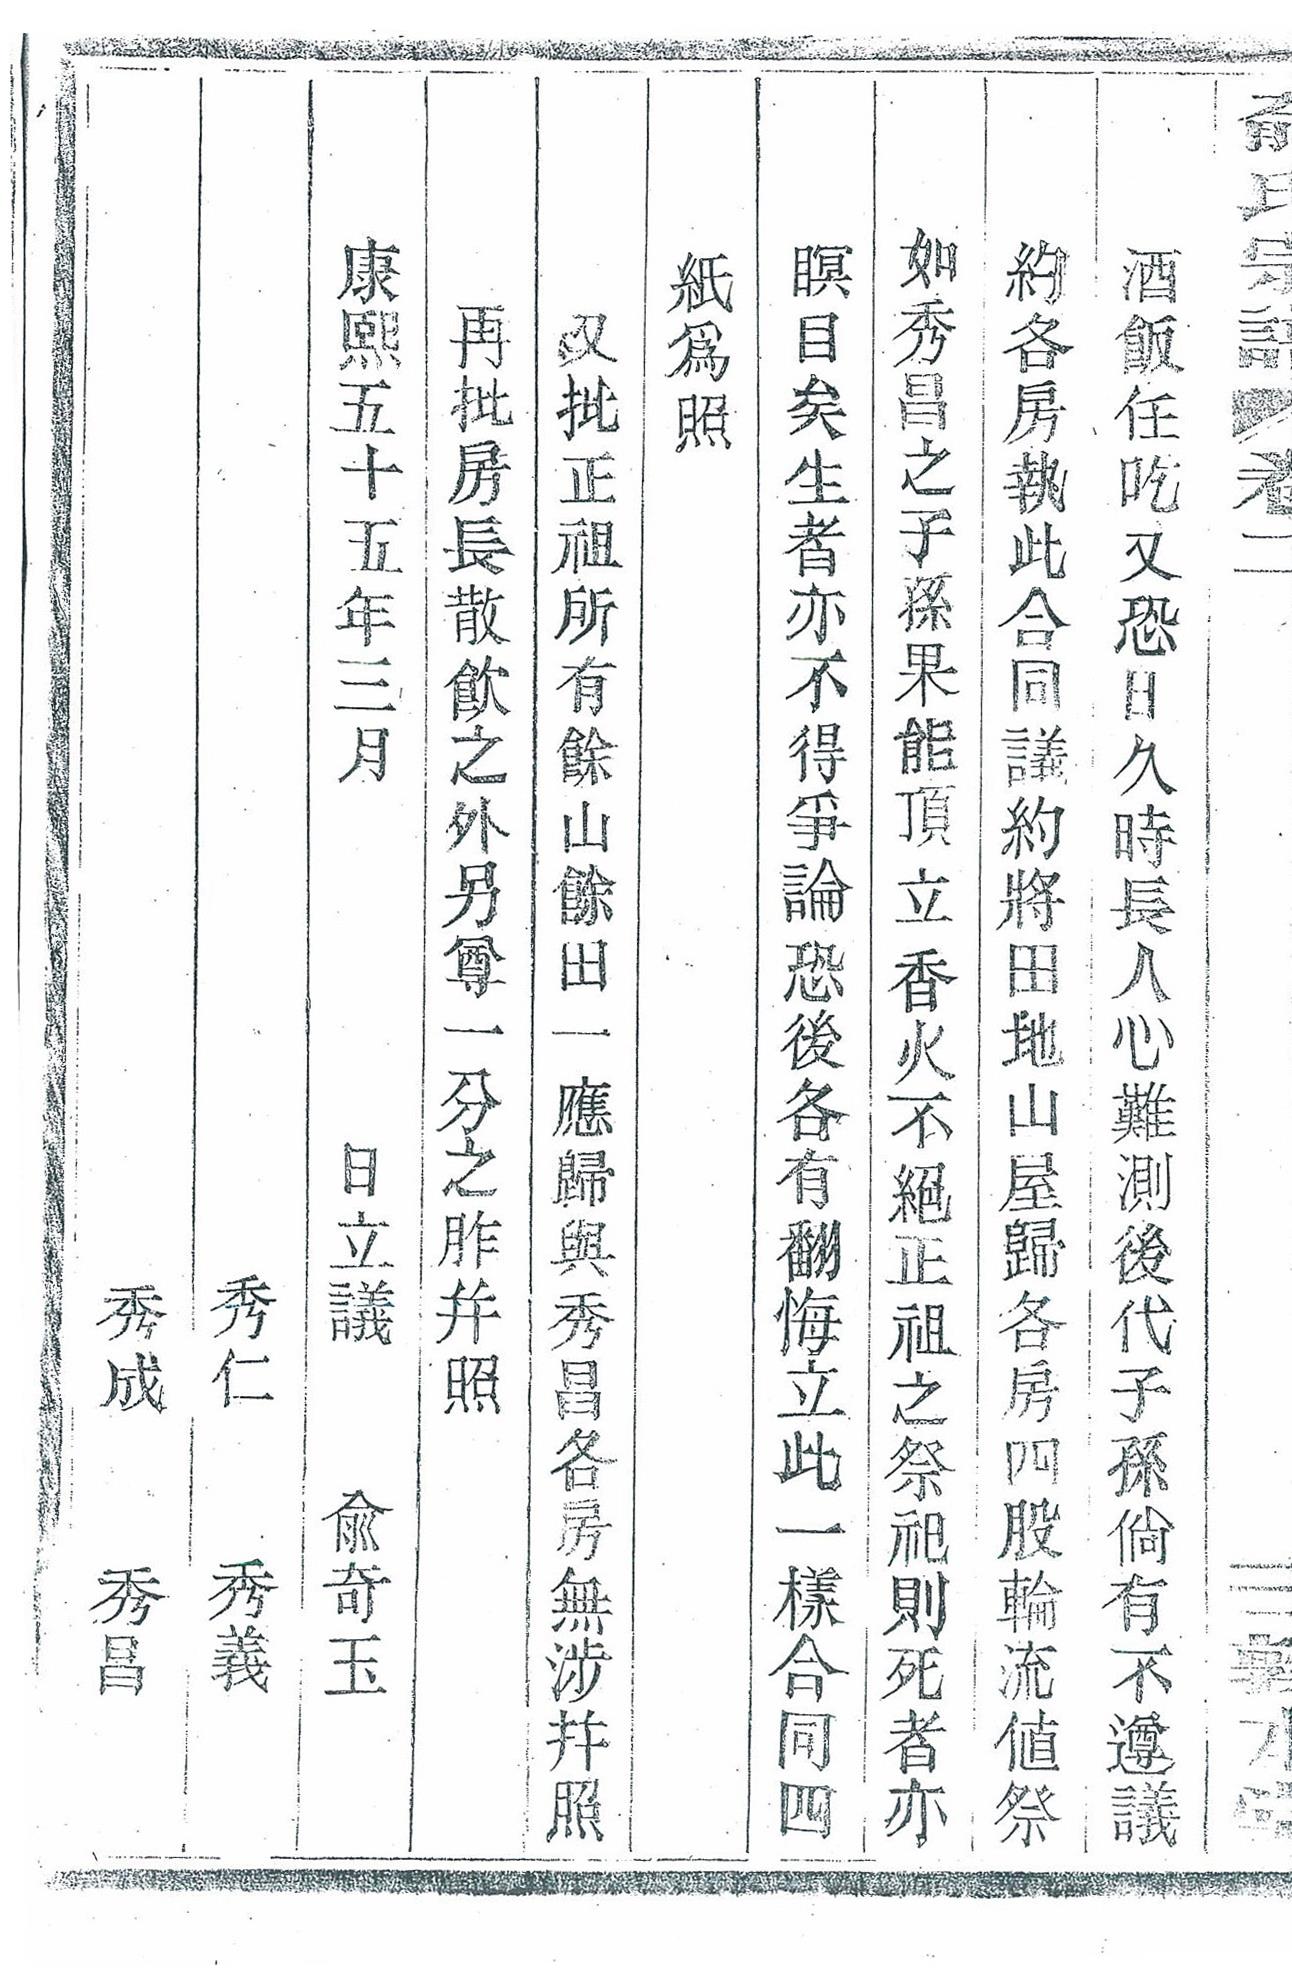 俞氏宗譜 卷二 三 敦本堂
酒飯任吃又恐日久時長人心難測後代子孫倘有不遵議
約各房執此合同議約將田地山屋歸各房四股輪流值祭
如秀昌之子孫果能頂立香火不絕正祖之祭祀則死者亦
瞑目矣生者亦不得爭論恐後各有翻悔立此一樣合同四
紙爲照
又批正祖所有餘山餘田一應歸與秀昌各房無涉并照
再批房長散飲之外另尊一分之胙并照
康熙五十五年三月 日立議 俞奇玉
秀仁 秀義
秀成 秀昌